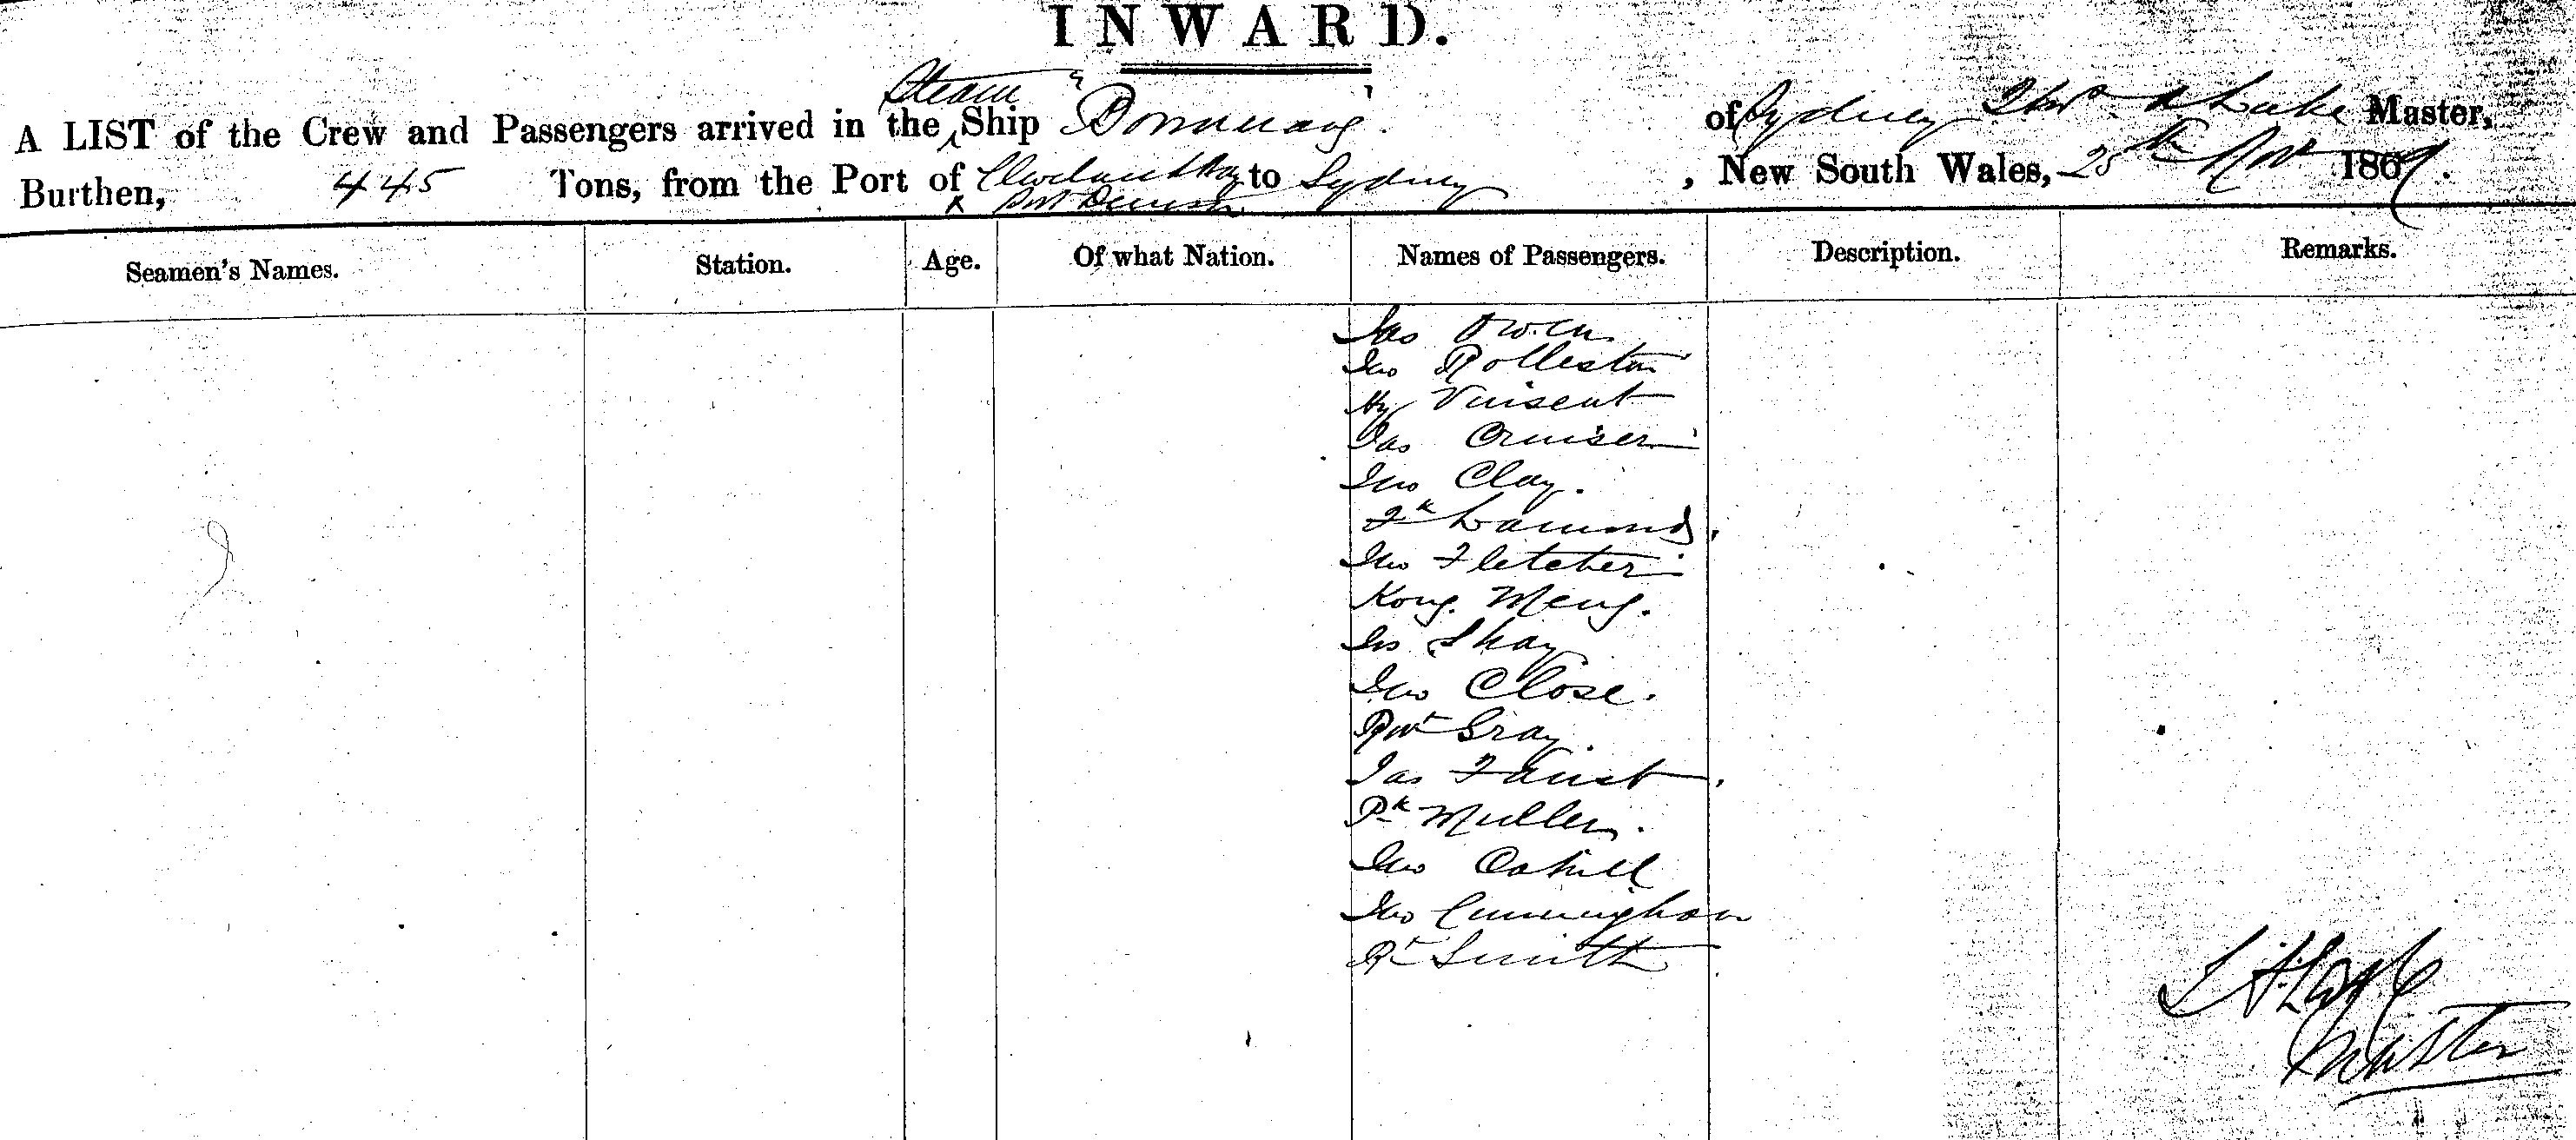 INWARD.
Steam
A LIST of the Crew and Passengers arrived in the Ship "Boomerang" of Sydney Thos. A Lake Master,
Burthen, 445 Tons, from the Port of Cleveland Bay to Sydney, New South Wales, 25th Nov 1869.
Port Denison
Seamen's Names. Station. Age. Of what Nation. Names of Passengers. Description. Remarks.
Jas Owen
Jno Rolleston
Hy Vinsent
Jas Cruiser
Jno Clay.
Fk
Jno Fletcher
Kong Meng.
Jas Shay
Jno Close.
Rbt Gray.
Jas Faust
Pk Mullen.
Jno Cahill
Jno Cunningham
Rt Smith
Master